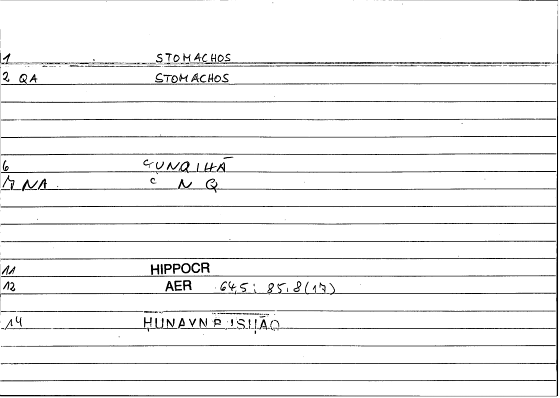 1 STOMACHOS
2 QA STOMACHOS
6 ʿUNQIHĀ
7 NA ʿ N Q
11 HIPPOCR
12 AER 64,5; 85,8(17)
14